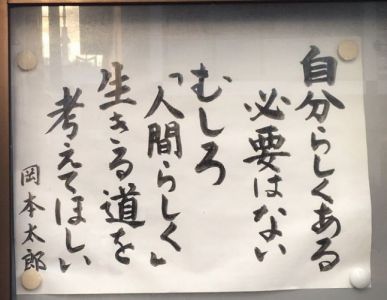 自分らしくある
必要はない
むしろ
「人間らしく」
生きる道を
考えてほしい
岡本太郎